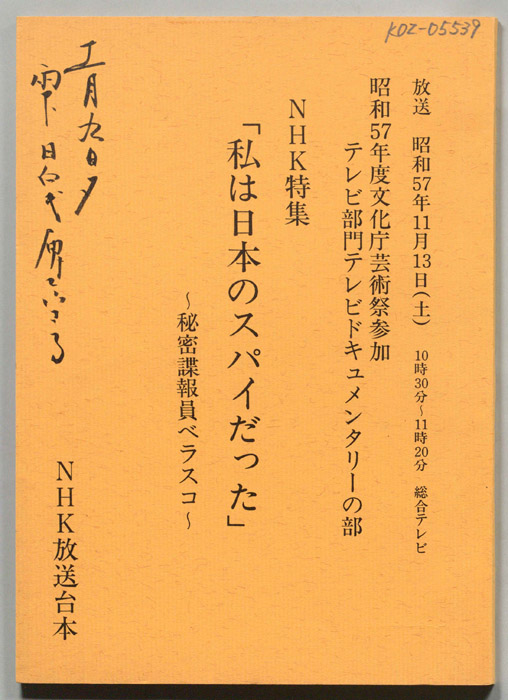 KDZ-05539
放送 昭和57年11月13日(土) 10時30分~11時20分 総合テレビ
昭和57年度文化庁芸術祭参加
テレビ部門テレビドキュメンタリーの部
NHK特集
「私は日本のスパイだった」
~秘密諜報員ベラスコ~
NHK放送台本
月九日夕